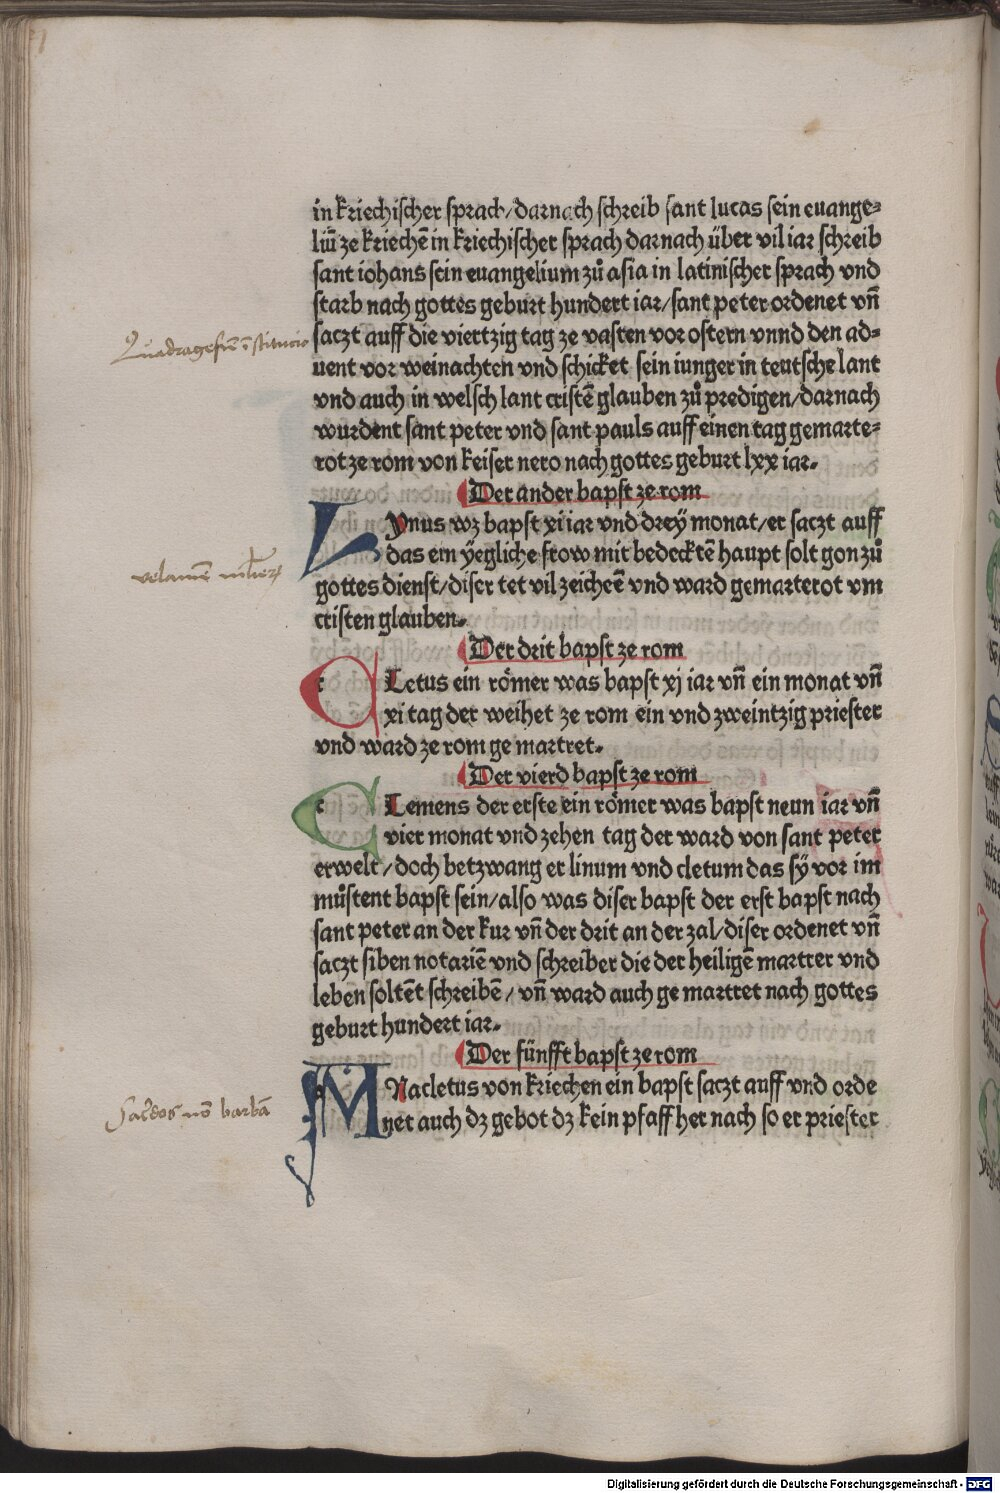 in kriechischer sprach/darnach schreib sant lucas sein euange⸗
liū ze kriechē in kriechischer sprach darnach über vil iar schreib
sant iohans sein euangelium zů asia in latinischer sprach vnd
starb nach gottes geburt hundert iar/sant peter ordenet vñ
saczt auff die viertzig tag ze vasten vor ostern vnnd den ad⸗
uent vor weinachten vnd schicket sein iunger in teutsche lant
vnd auch in welsch lant cristē glauben zů predigen/darnach
wurdent sant peter vnd sant pauls auff einen tag gemarte⸗
rot ze rom von keiser nero nach gottes geburt lxx iar.
Der ander bapst ze rom
Lynus wz bapst xi iar vnd drey monat/er saczt auff
das ein yegliche frow mit bedecktē haupt solt gon zů
gottes dienst/diser tet vil zeicheē vnd ward gemarterot vm
cristen glauben.
Der drit bapst ze rom
CLetus ein römer was bapst xj iar vñ ein monat vñ
xi tag der weihet ze rom ein vnd zweintzig priester
vnd ward ze rom ge martret.
Der vierd bapst ze rom
CLemens der erste ein römer was bapst neun iar vñ
vier monat vnd zehen tag der ward von sant peter
erwelt/doch betzwang er linum vnd cletum das sÿ vor im
můstent bapst sein/also was diser bapst der erst bapst nach
sant peter an der kur vñ der drit an der zal/diser ordenet vñ
saczt siben notariē vnd schreiber die der heiligē martrer vnd
leben soltēt schreibē/vñ ward auch ge martret nach gottes
geburt hundert iar.
Der fünfft bapst ze rom
Nacletus von kriechen ein bapst saczt auff vnd orde
net auch dz gebot dz kein pfaff her nach so er priester
Quadragesīe īstitucio
velamē mlier
Sacdos nō barbā
Digitalisierung gefördert durch die Deutsche Forschungsgemeinschaft - DFG